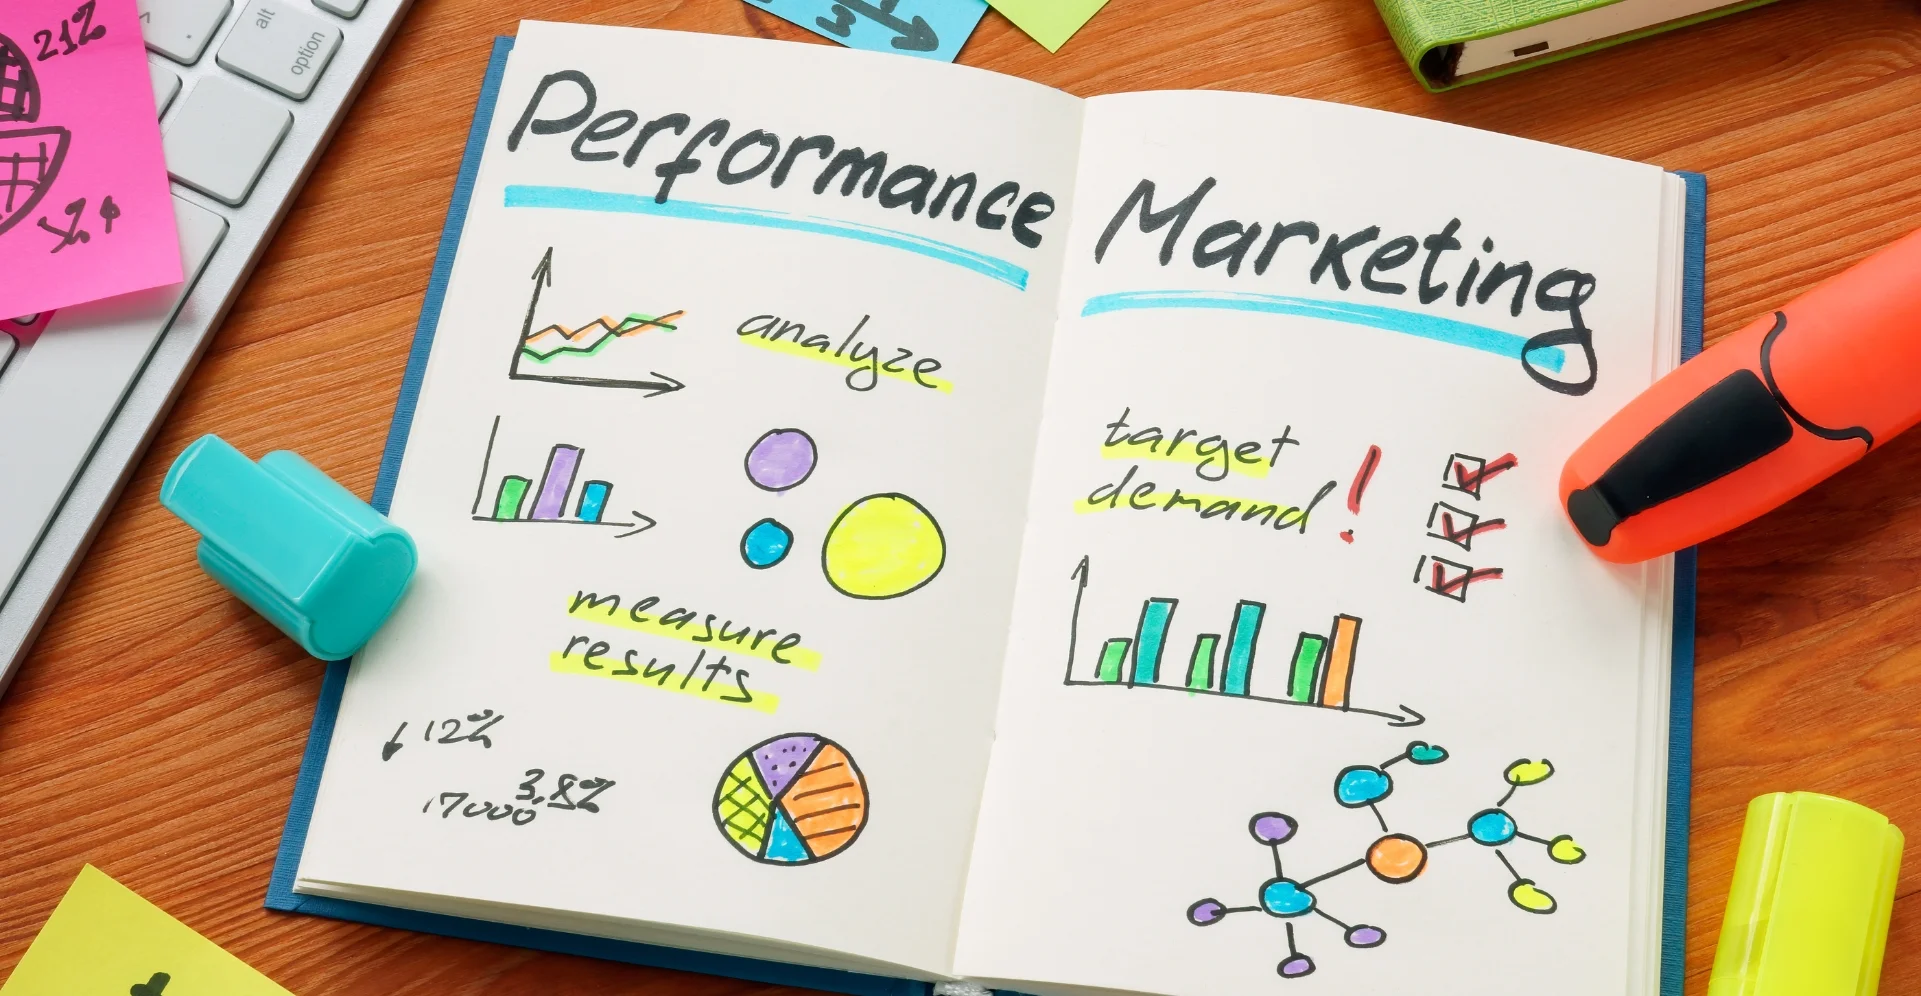 21%
alt
option
Performance
Marketing
analyze
measure
results
↓ 12%
17000 3,8%
target
demand!